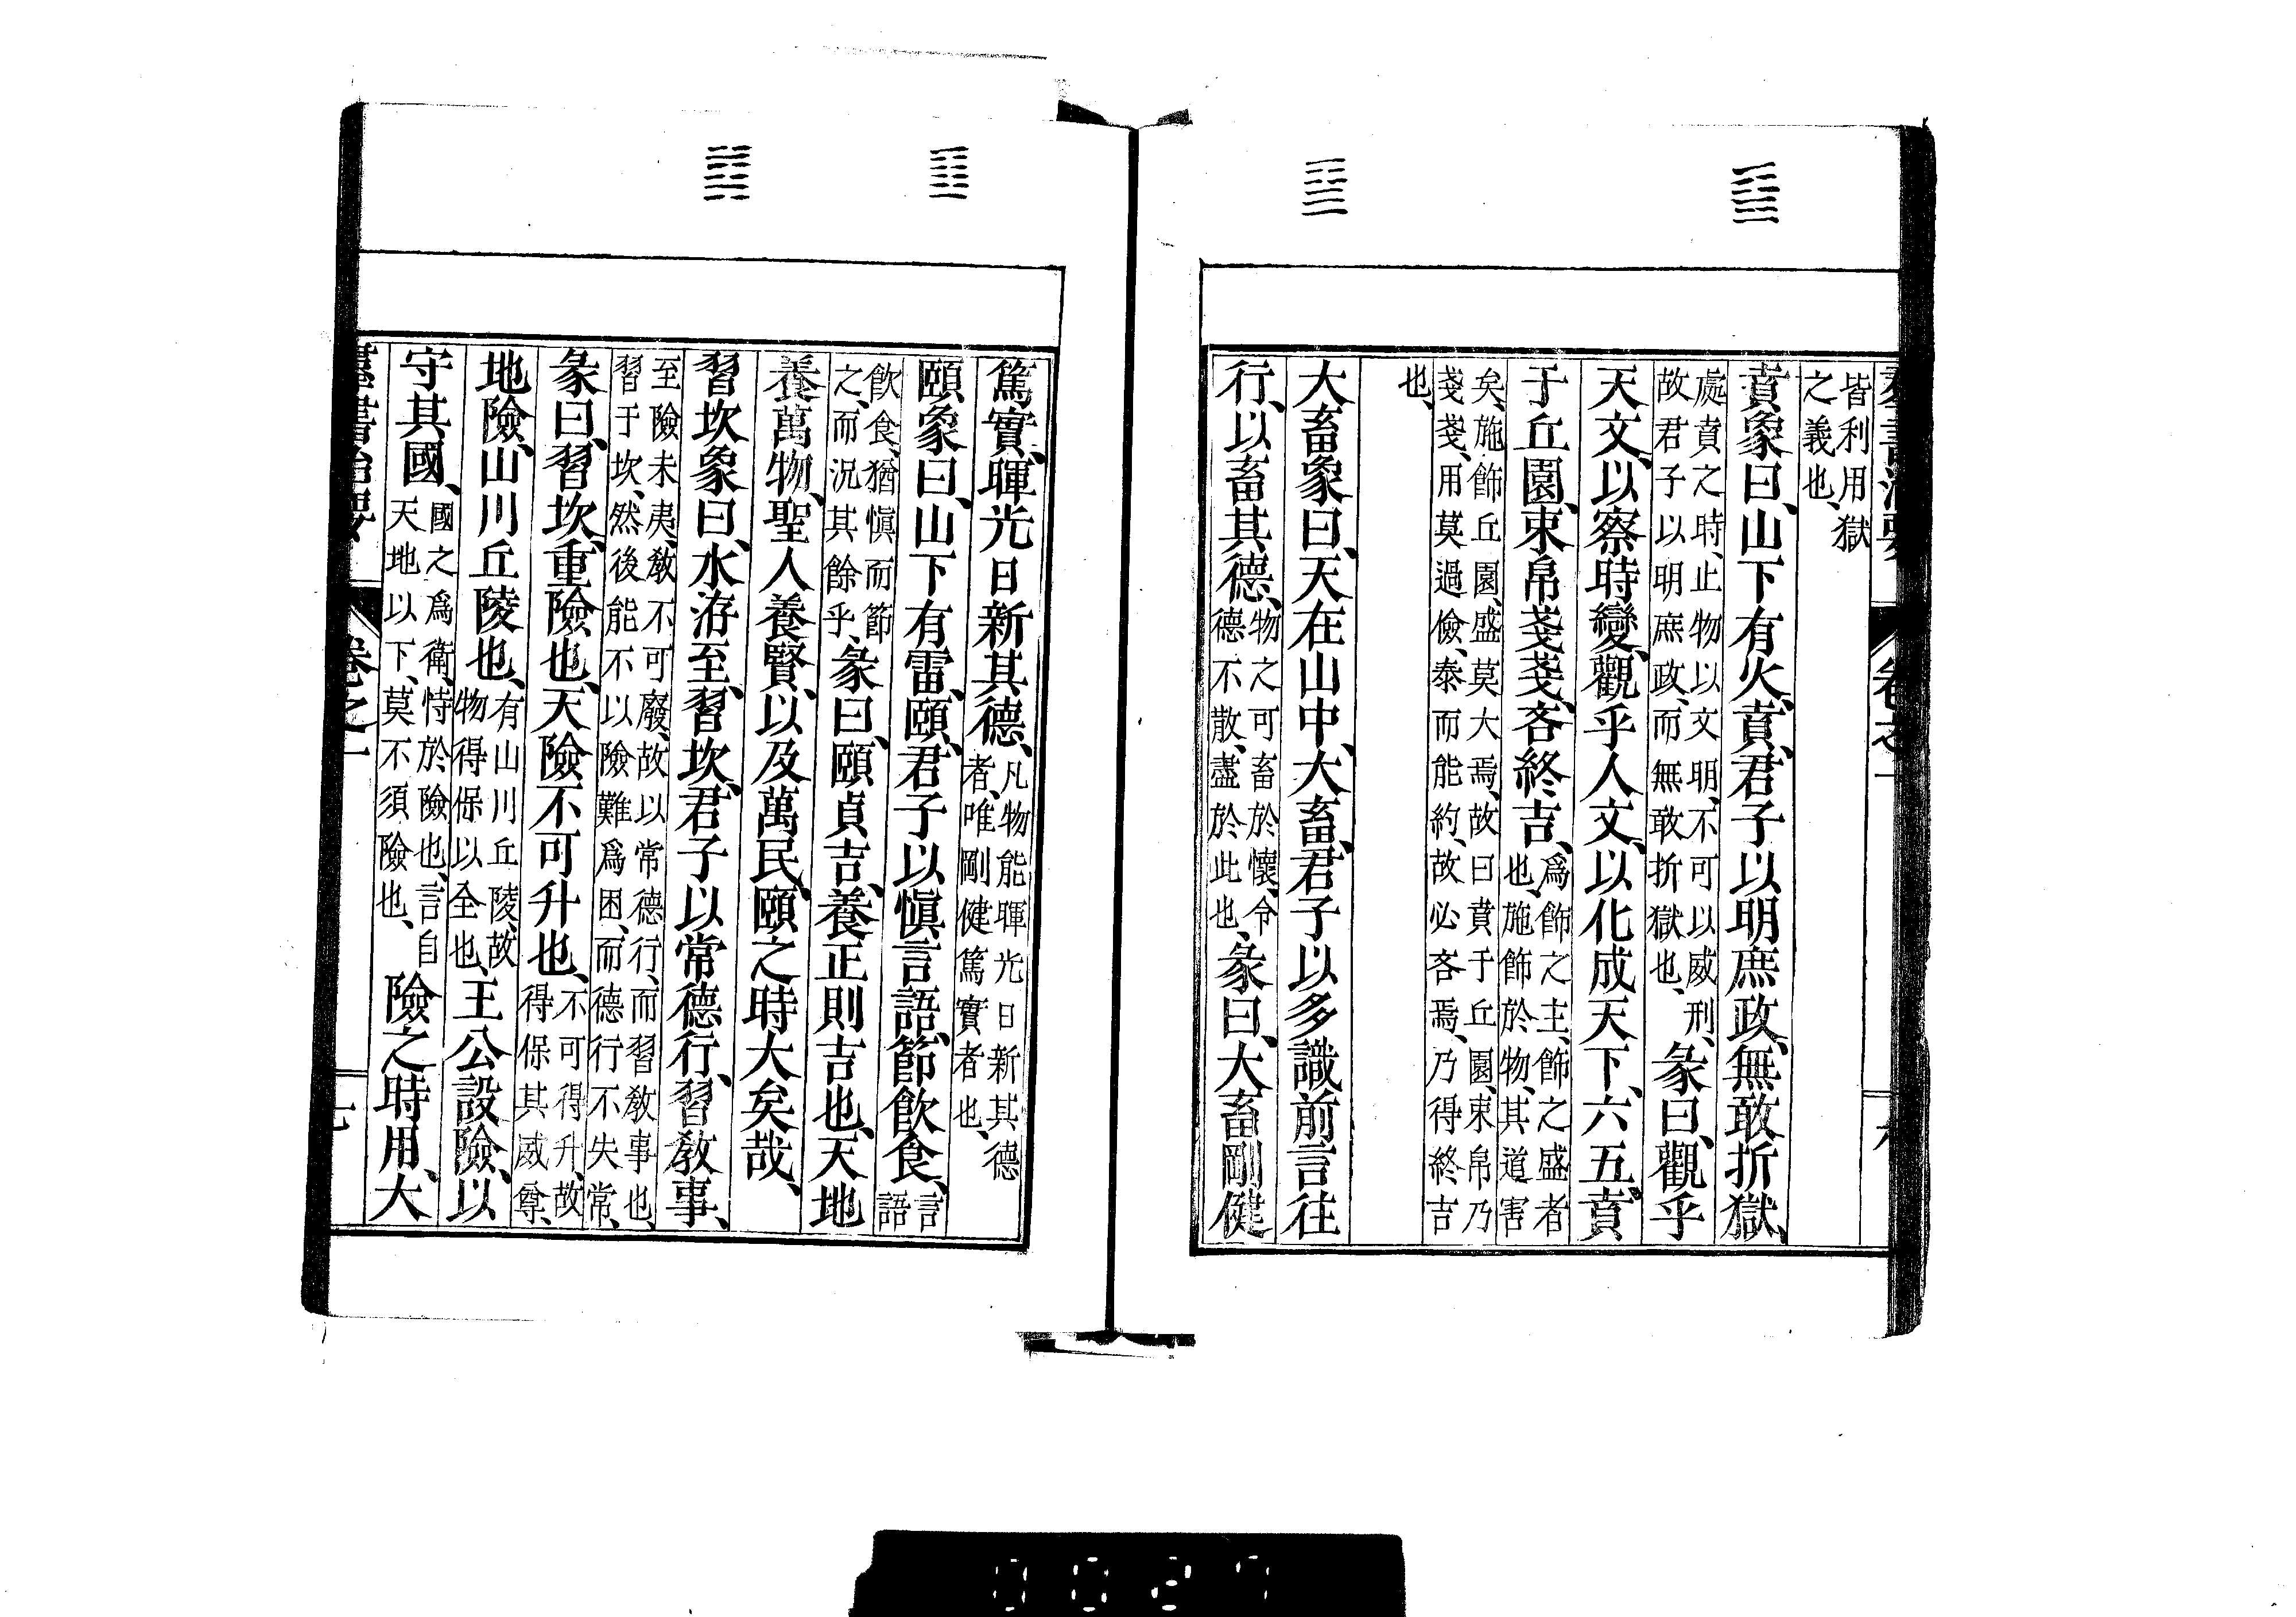 羣書治要 卷之一
皆利用獄
之義也、
賁、象曰、山下有火、賁、君子以明庶政、無敢折獄、
處賁之時、止物以文明、不可以威刑、
故君子以明庶政、而無敢折獄也、
彖曰、觀乎
天文、以察時變、觀乎人文、以化成天下、六五、賁
于丘園、束帛戔戔、吝終吉、
爲飾之主、飾之盛者
也、施飾於物、其道害
矣、施飾丘園、盛莫大焉、故曰賁于丘園、束帛乃
戔戔、用莫過儉、泰而能約、故必吝焉、乃得終吉
也、
大畜象曰、天在山中、大畜、君子以多識前言往
行、以畜其德、
物之可畜於懷、令
德不散、盡於此也、
彖曰、大畜剛健
篤實、暉光日新其德、
凡物能暉光日新其德
者、唯剛健篤實者也、
頤、象曰、山下有雷、頤、君子以愼言語、節飲食、
言
語
飲食、猶愼而節
之、而況其餘乎、
彖曰、頤貞吉、養正則吉也、天地
養萬物、聖人養賢、以及萬民、頤之時大矣哉、
習坎象曰、水洊至、習坎、君子以常德行、習敎事、
至險未夷、敎不可廢、故以常德行、而習敎事也、
習于坎、然後能不以險難爲困、而德行不失常、
彖曰、習坎、重險也、天險不可升也、
不可得升、故
得保其威尊、
地險、山川丘陵也、
有山川丘陵、故
物得保以全也、
王公設險、以
守其國、
國之爲衛、恃於險也、言自
天地以下、莫不須險也、
險之時用、大
羣書治要 卷之一 七
0027